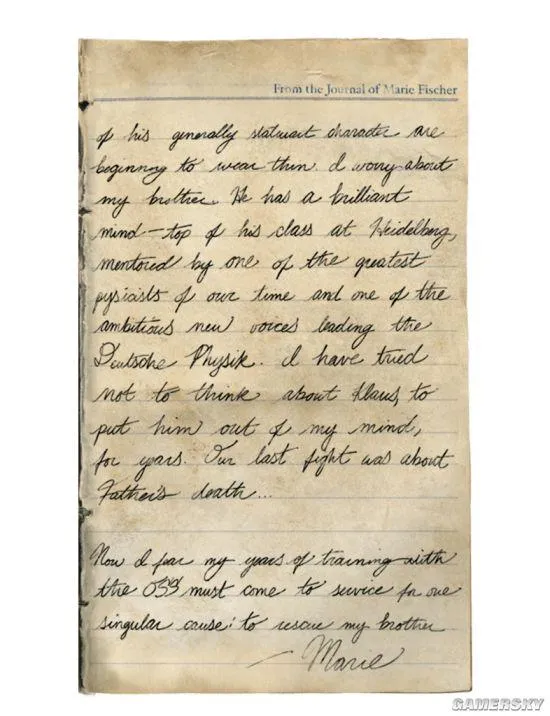 From the Journal of Marie Fischer
of his generally stalwart character are
beginning to wear thin. I worry about
my brother. He has a brilliant
mind—top of his class at Heidelberg,
mentored by one of the greatest
pysicists of our time and one of the
ambitious new voices leading the
Deutsche Physik. I have tried
not to think about Klaus, to
put him out of my mind,
for years. Our last fight was about
Father's death...
Now I fear my years of training with
the OSS must come to service for one
singular cause: to rescue my brother
— Marie
GAMERSKY